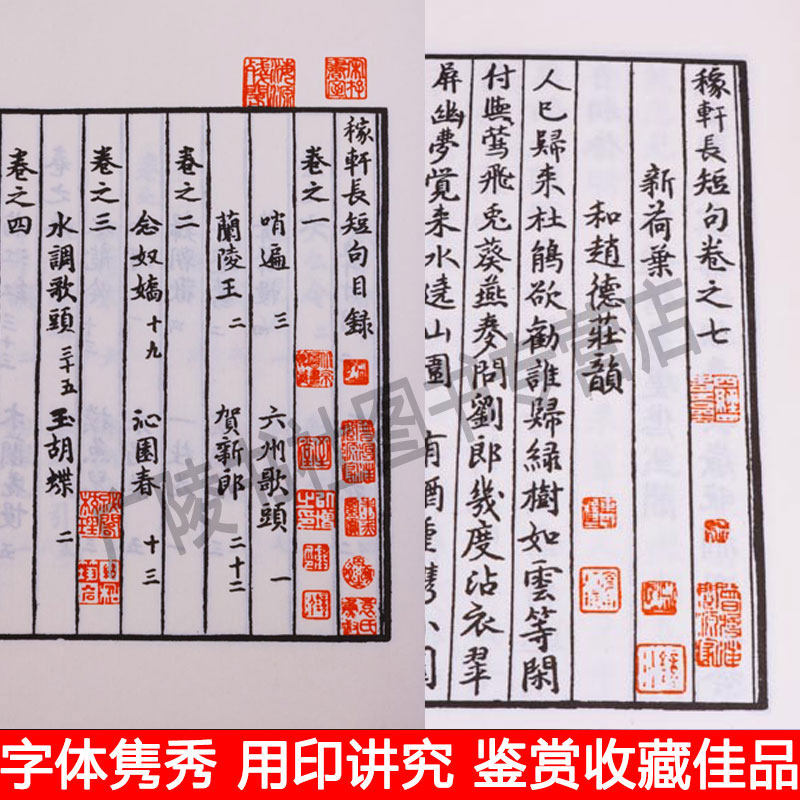 稼軒長短句目録
卷之一
哨遍 三 六州歌頭 一
蘭陵王 二 賀新郎 二十二
卷之二
念奴嬌 十九 沁園春 十三
卷之三
水調歌頭 三十五 玉胡蝶 二
卷之四
稼軒長短句卷之七
新荷葉
和趙德莊韻
人已歸来杜鵑欲勸誰歸緑樹如雲等閑
付與鶯飛兎葵燕麥問劉郎幾度沾衣翠
屏幽夢覺来水遶山圍 有酒重攜小園
广陵书社图书专营店
字体隽秀 用印讲究 鉴赏收藏佳品